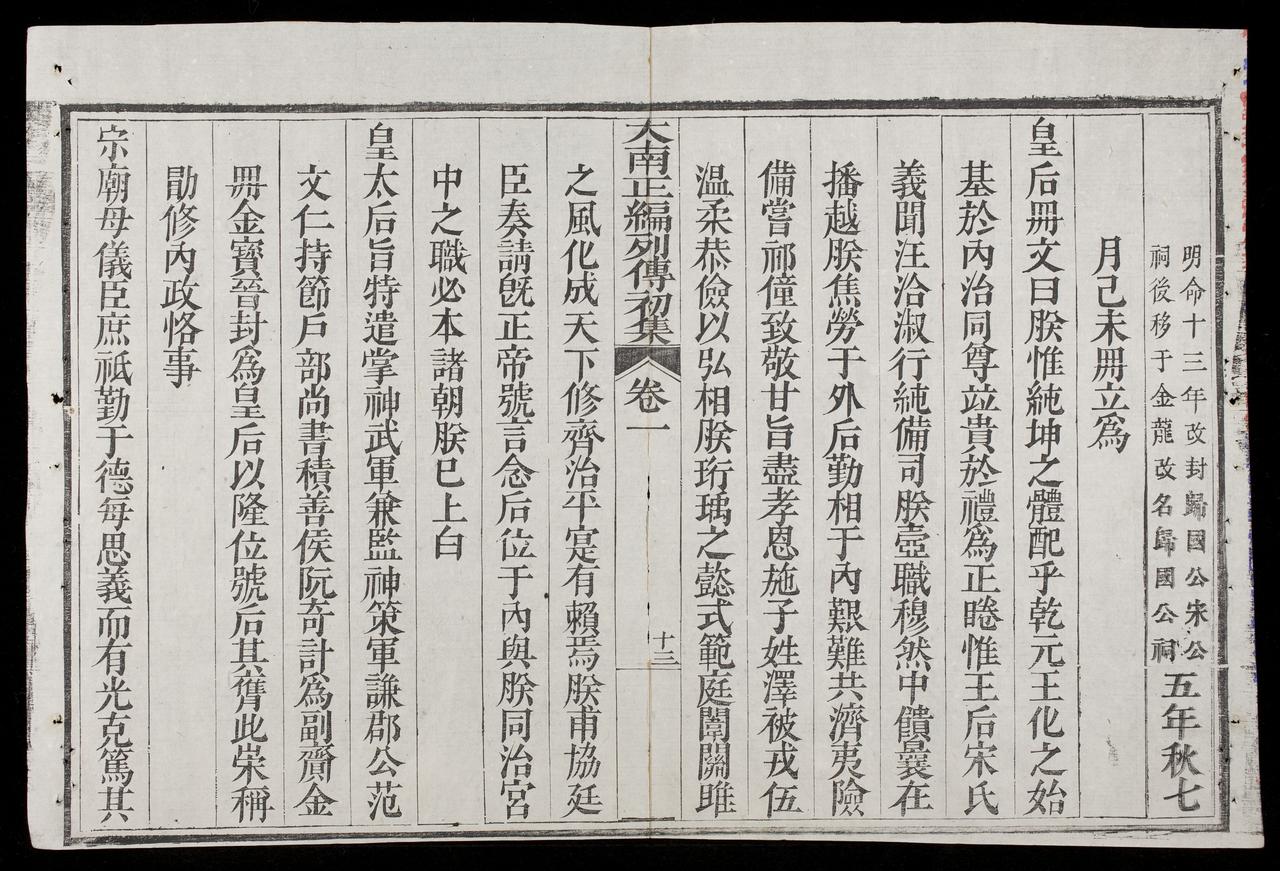 明命十三年改封歸國公宋公
祠後移于金龍改名歸國公祠
五年秋七
月己未冊立爲
皇后冊文曰朕惟純坤之體配乎乾元王化之始
基於內治同尊竝貴於禮爲正睠惟王后宋氏
義聞汪洽淑行純備司朕壼職穆然中饋曩在
播越朕焦勞于外后勤相于內艱難共濟夷險
備嘗祁僮致敬甘旨盡孝恩施子姓澤被戎伍
溫柔恭儉以弘相朕珩瑀之懿式範庭闈關雎
大南正編列傳初集
卷一
十三
之風化成天下修齊治平寔有賴焉朕甫協廷
臣奏請旣正帝號言念后位于內與朕同治宮
中之職必本諸朝朕已上白
皇太后旨特遣掌神武軍兼監神策軍謙郡公范
文仁持節戶部尚書積善侯阮奇計爲副齎金
冊金寶晉封爲皇后以隆位號后其膺此崇稱
勖修內政恪事
宗廟母儀臣庶祗勤于德每思義而有光克篤其